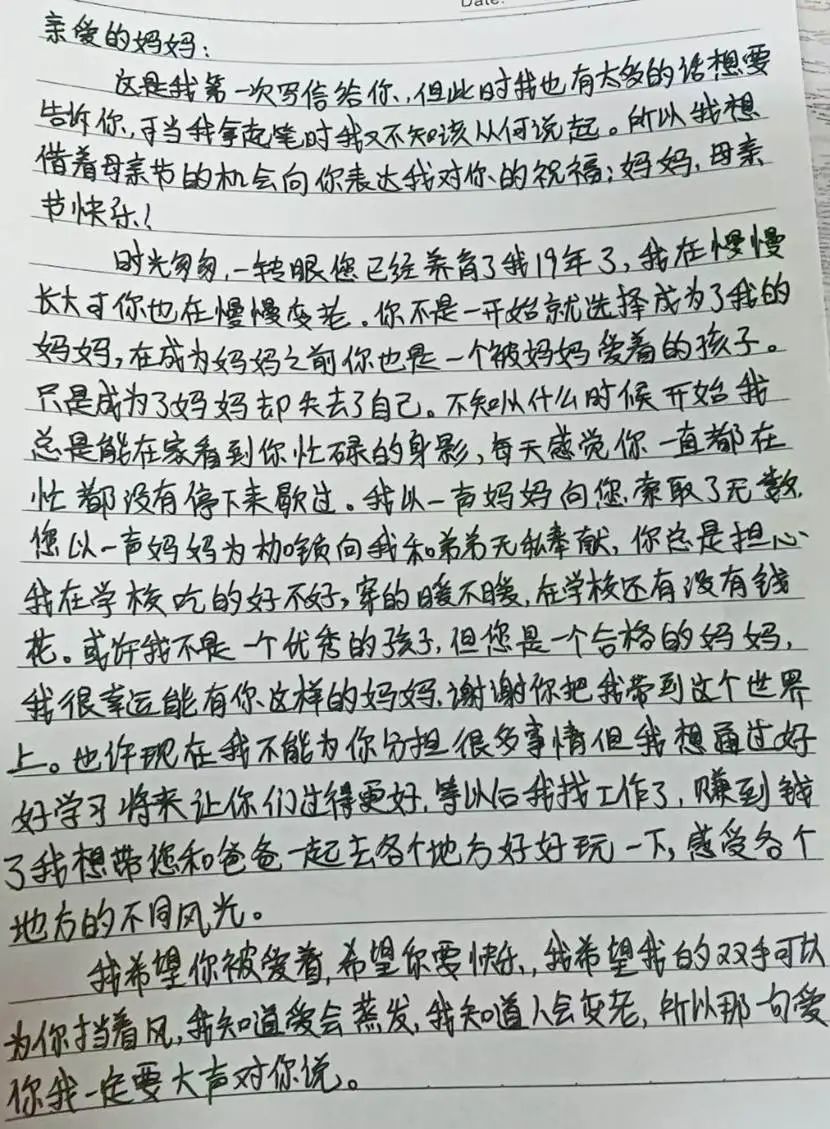 Date:
亲爱的妈妈：
这是我第一次写信给你，但此时我也有太多的话想要
告诉你，可当我拿起笔时我又不知该从何说起。所以我想
借着母亲节的机会向你表达我对你的祝福；妈妈，母亲
节快乐！
时光匆匆，一转眼您已经养育了我19年了，我在慢慢
长大可你也在慢慢变老。你不是一开始就选择成为了我的
妈妈，在成为妈妈之前你也是一个被妈妈爱着的孩子。
只是成为了妈妈却失去了自己。不知从什么时候开始我
总是能在家看到你忙碌的身影，每天感觉你一直都在
忙都没有停下来歇过。我以一声妈妈向您索取了无数，
您以一声妈妈为枷锁向我和弟弟无私奉献，你总是担心
我在学校吃的好不好，穿的暖不暖，在学校还有没有钱
花。或许我不是一个优秀的孩子，但您是一个合格的妈妈，
我很幸运能有你这样的妈妈，谢谢你把我带到这个世界
上。也许现在我不能为你分担很多事情但我想通过好
好学习将来让你们过得更好，等以后我找工作了，赚到钱
了我想带您和爸爸一起去各个地方好好玩一下，感受各个
地方的不同风光。
我希望你被爱着，希望你要快乐，我希望我的双手可以
为你挡着风，我知道爱会蒸发，我知道人会变老，所以那一句爱
你我一定要大声对你说。